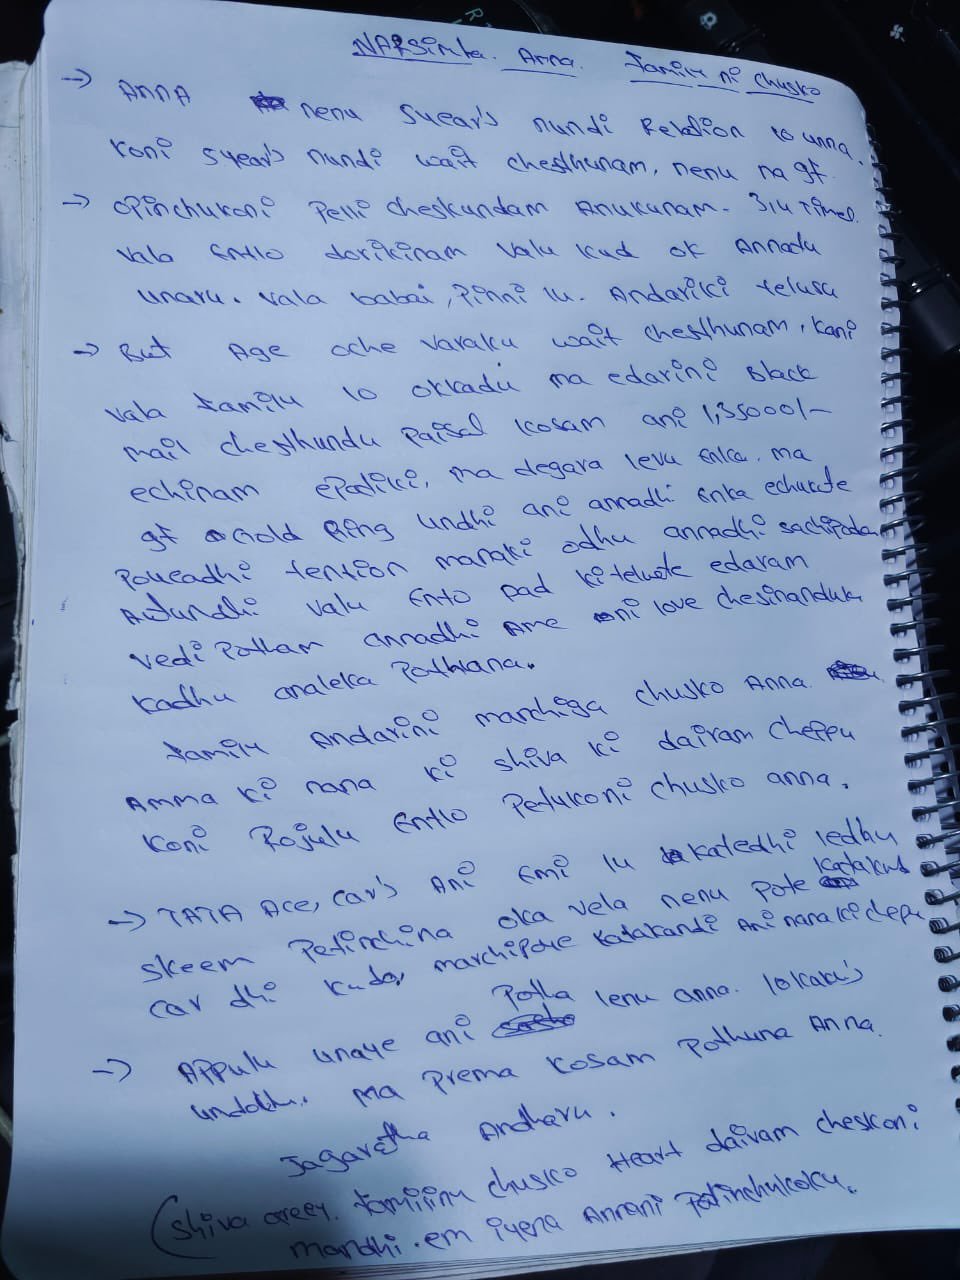 NARSimha. Anna. family ni chusko
→ ANNA nenu 5year's nundi Relation lo unna.
Koni 5year's nundi wait chesthunam, nenu na gf
→ Opinchukoni Pelli cheskundam Anukunam. 3,4 Times
vala Entlo dorikinam valu kud ok Annadu
unaru. vala babai, Pinni lu. Andariki telusu
→ But Age oche varaku wait chesthunam, kani
vala family lo okkadu ma edarini Black
mail chesthundu Paisal kosam ani 1,35000/-
echinam epatiki, ma degara levu Enka. ma
gf Gold Ring undhi ani annadhi Enka echukute
poueadhi tention manaki odhu annadhi sachipodam
Avtundhi valu Ento pad ki teluste edaram
vedi potham annadhi Ame ni love chesinanduku
kadhu analeka Pothiana.
family Andarini manchiga chusko Anna.
Amma ki nana ki shiva ki dairam cheppu
koni Rojulu Entlo Petukoni chusko anna.
→ TATA Ace, car's Ani Emi lu katedhi ledhu
skeem Petinchina oka vela nenu pote katakud
car dhi kuda, marchipoye katakandi Ani nana ki cepu
→ Appulu unaye ani Potha lenu anna. 10lakh's
undobhu. Ma Prema kosam Pothuna Anna.
Jagaratha Andharu.
(shiva oreey. familini chusko Heart dairam cheskoni
mandhi. em iyena Annani Patinchukoku.